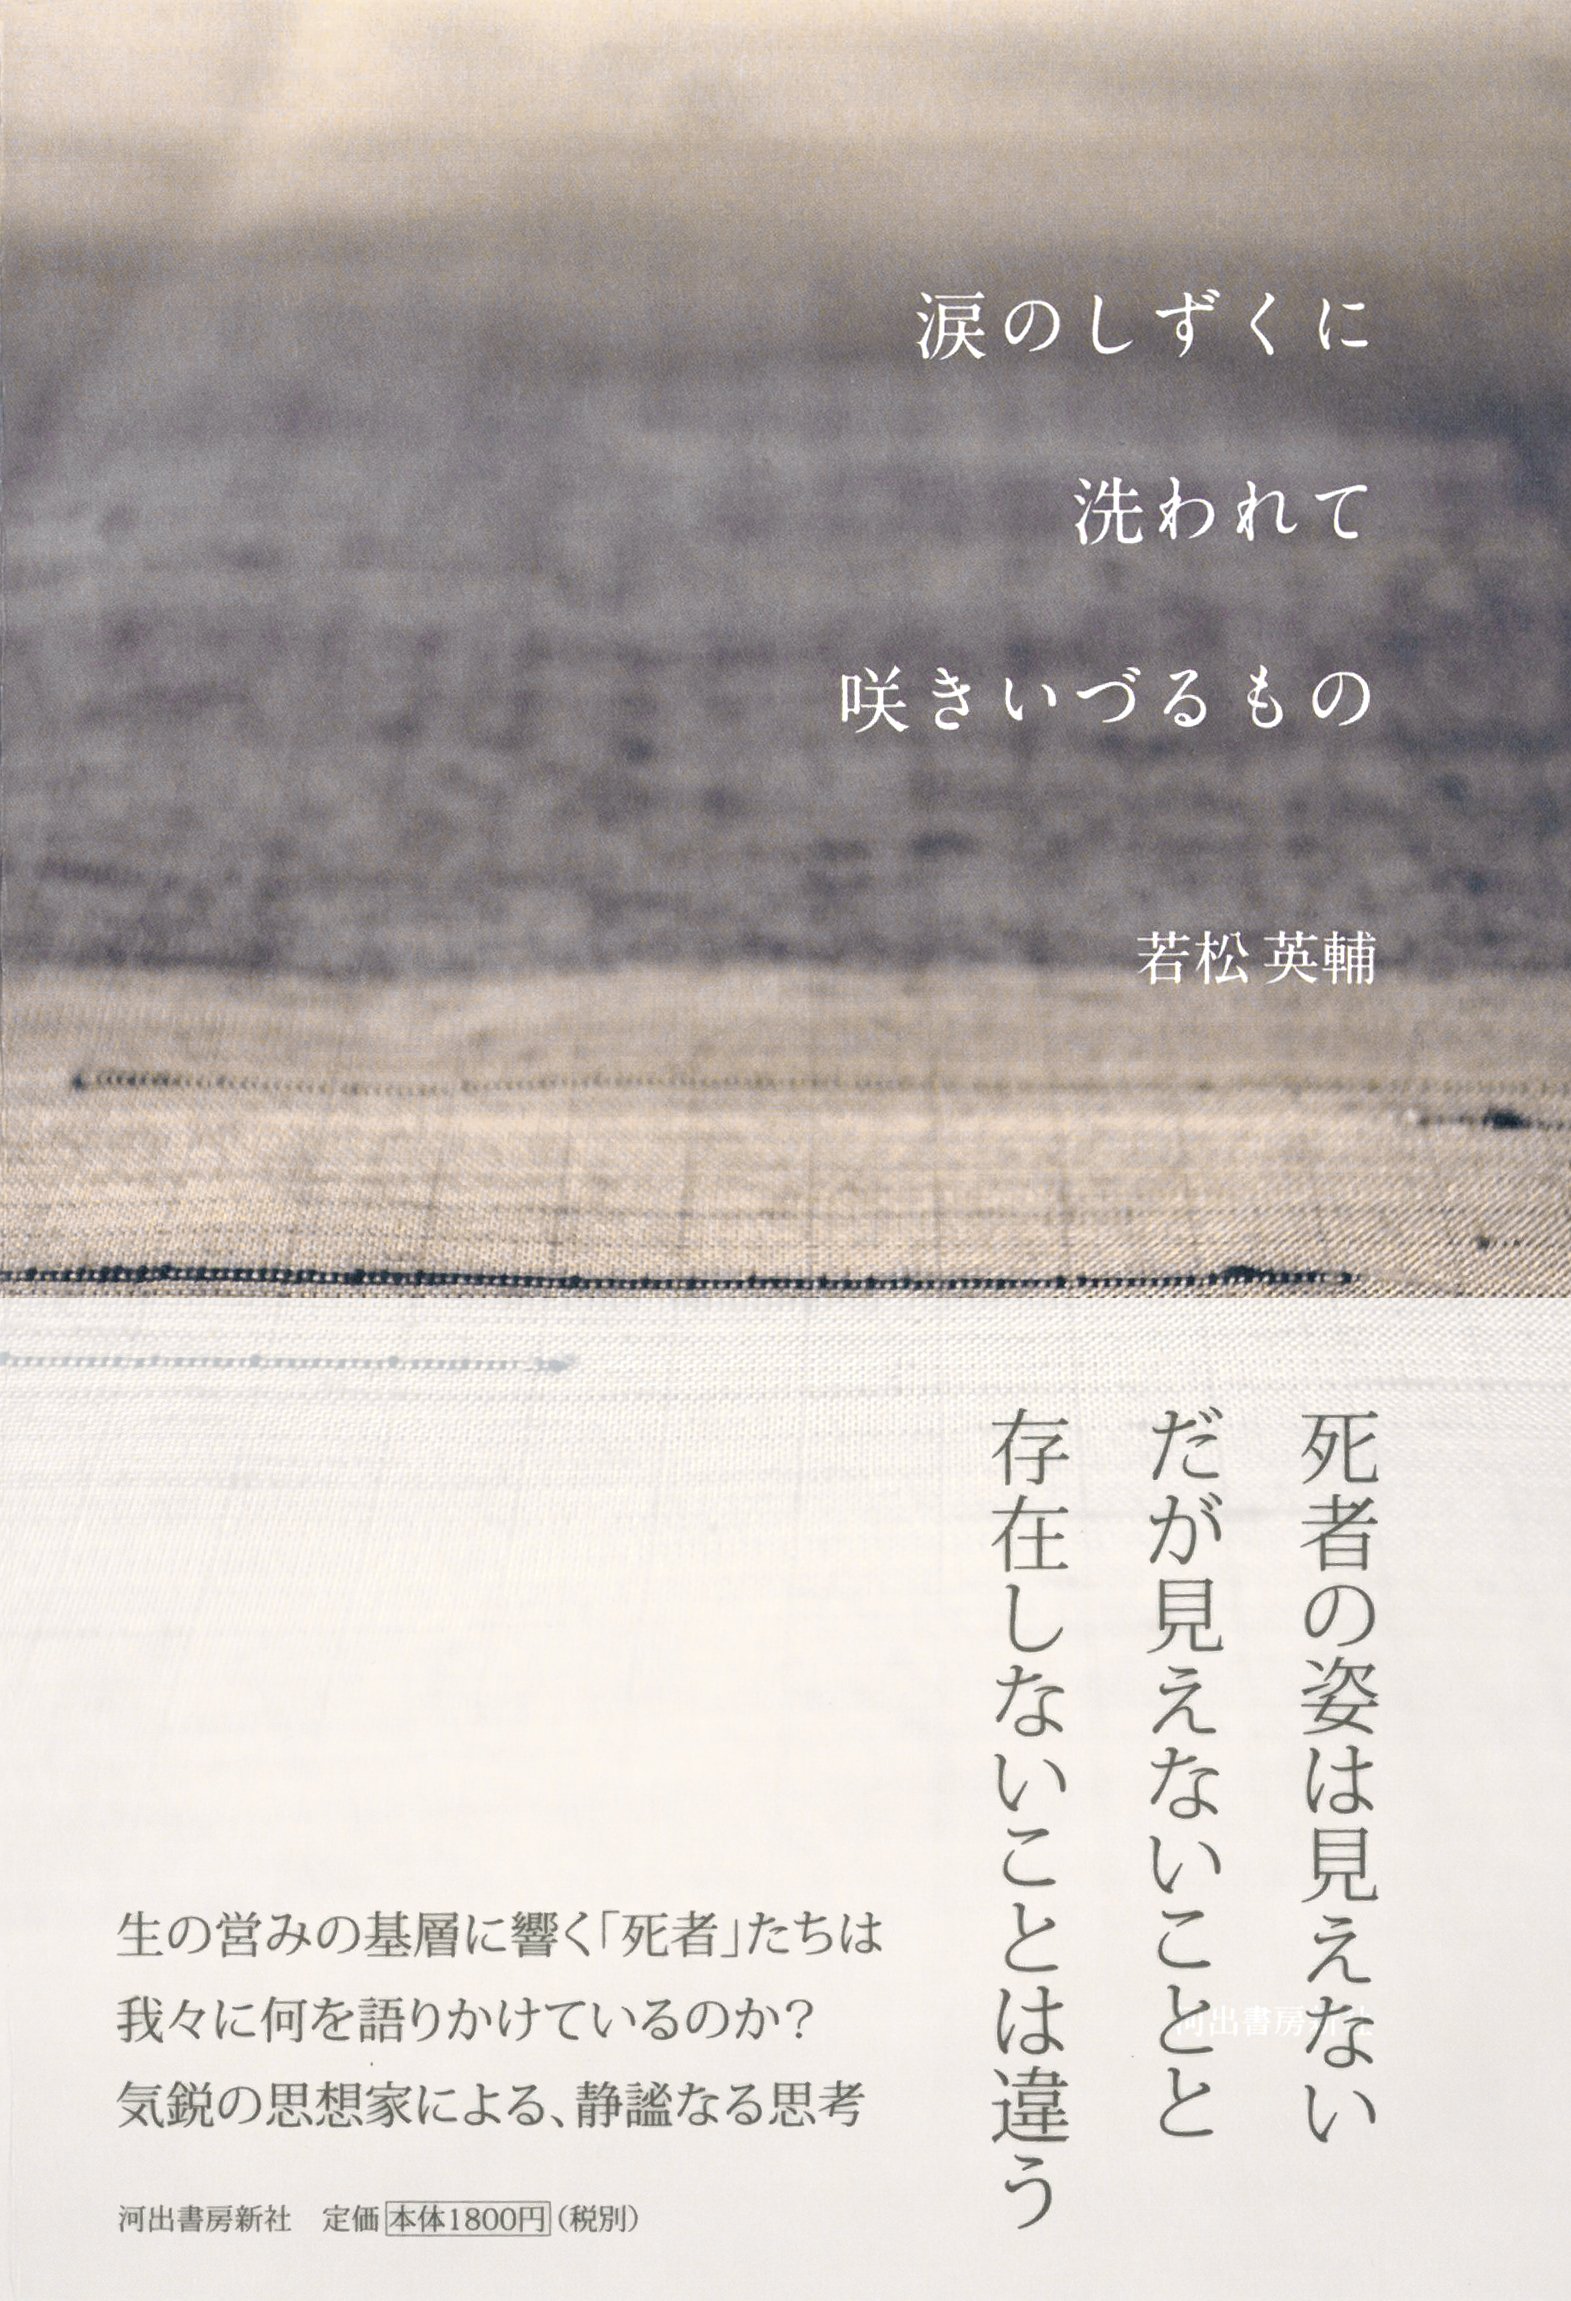 涙のしずくに
洗われて
咲きいづるもの
若松 英輔
死者の姿は見えない
だが見えないことと
存在しないことは違う
河出書房新社
生の営みの基層に響く「死者」たちは
我々に何を語りかけているのか?
気鋭の思想家による、静謐なる思考
河出書房新社　定価 本体1800円 (税別)